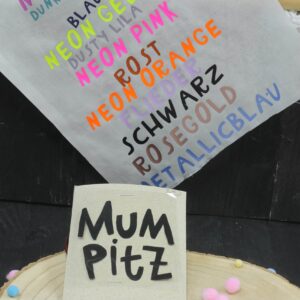 DUNK
BLAU
NEON GEL
DUSTY LILA
NEON PINK
ROST
NEON ORANGE
FLIEDER
SCHWARZ
ROSEGOLD
METALLICBLAU
MUM
PITZ